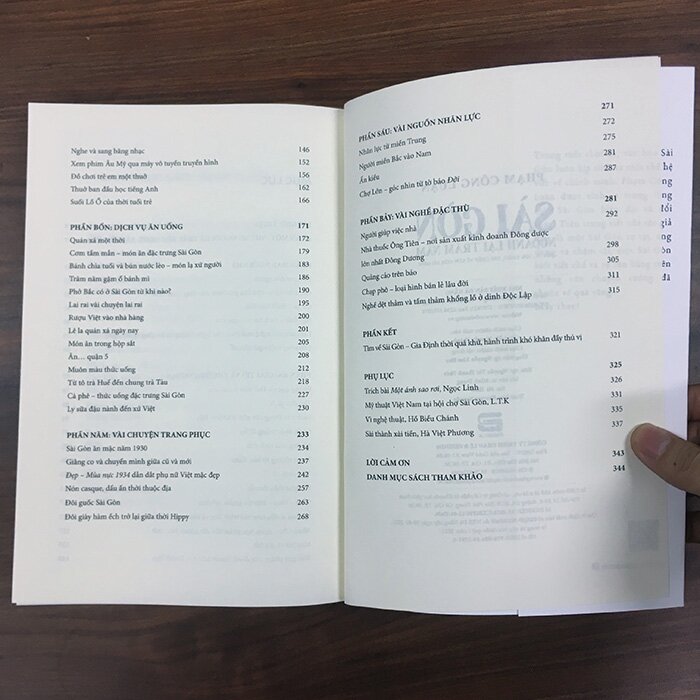 Nghe và sang băng nhạc 146
Xem phim Âu Mỹ qua máy vô tuyến truyền hình 152
Đồ chơi trẻ em một thuở 156
Thuở ban đầu học tiếng Anh 162
Suối Lồ Ồ của thời tuổi trẻ 166
PHẦN BỐN: DỊCH VỤ ĂN UỐNG 171
Quán xá một thời 172
Cơm tấm mắn – món ăn đặc trưng Sài Gòn 179
Bánh chìa tuổi và bún nước lèo – món lạ xứ người 183
Trăm năm gặm ổ bánh mì 186
Phở Bắc có ở Sài Gòn từ khi nào? 190
Lai rai vài chuyện lai rai 195
Rượu Việt vào nhà hàng 200
Lê la quán xá ngày nay 201
Món ăn trong hộp sắt 205
Ăn... quận 5 208
Muôn màu thức uống 212
Từ tô trà Huế đến chung trà Tàu 218
Cà phê – thức uống đặc trưng Sài Gòn 227
Ly sữa đậu nành đến xứ Việt 230
PHẦN NĂM: VÀI CHUYỆN TRANG PHỤC 233
Sài Gòn ăn mặc năm 1930 234
Giằng co và chuyển mình giữa cũ và mới 237
Đẹp – Mùa nực 1934 dẫn dắt phụ nữ Việt mặc đẹp 242
Nón casque, dấu ấn thời thuộc địa 257
Đôi guốc Sài Gòn 263
Đôi giày hàm ếch trở lại giữa thời Hippy 268
PHẦN SÁU: VÀI NGUỒN NHÂN LỰC 271
Nhân lực từ miền Trung 272
Người miền Bắc vào Nam 275
Ấn kiều 281
Chợ Lớn – góc nhìn từ tờ báo Đời 287
PHẦN BẢY: VÀI NGHỀ ĐẶC THÙ 281
Người giúp việc nhà 292
Nhà thuốc Ông Tiên – nơi sản xuất kinh doanh Đông dược
lớn nhất Đông Dương 298
Quảng cáo trên báo 305
Chạp phô – loại hình bán lẻ lâu đời 311
Nghề dệt thảm và tấm thảm khổng lồ ở dinh Độc Lập 315
PHẦN KẾT
Tìm về Sài Gòn – Gia Định thời quá khứ, hành trình khó khăn đầy thú vị 321
PHỤ LỤC 325
Trích bài Một ánh sao rơi, Ngọc Linh 326
Mỹ thuật Việt Nam tại hội chợ Sài Gòn, L.T.K 331
Vì nghệ thuật, Hồ Biểu Chánh 335
Sài thành xài tiền, Hà Việt Phương 337
LỜI CẢM ƠN 343
DANH MỤC SÁCH THAM KHẢO 344
Sài
hệ
ng
ng
giả
ng
òn
ên
đã